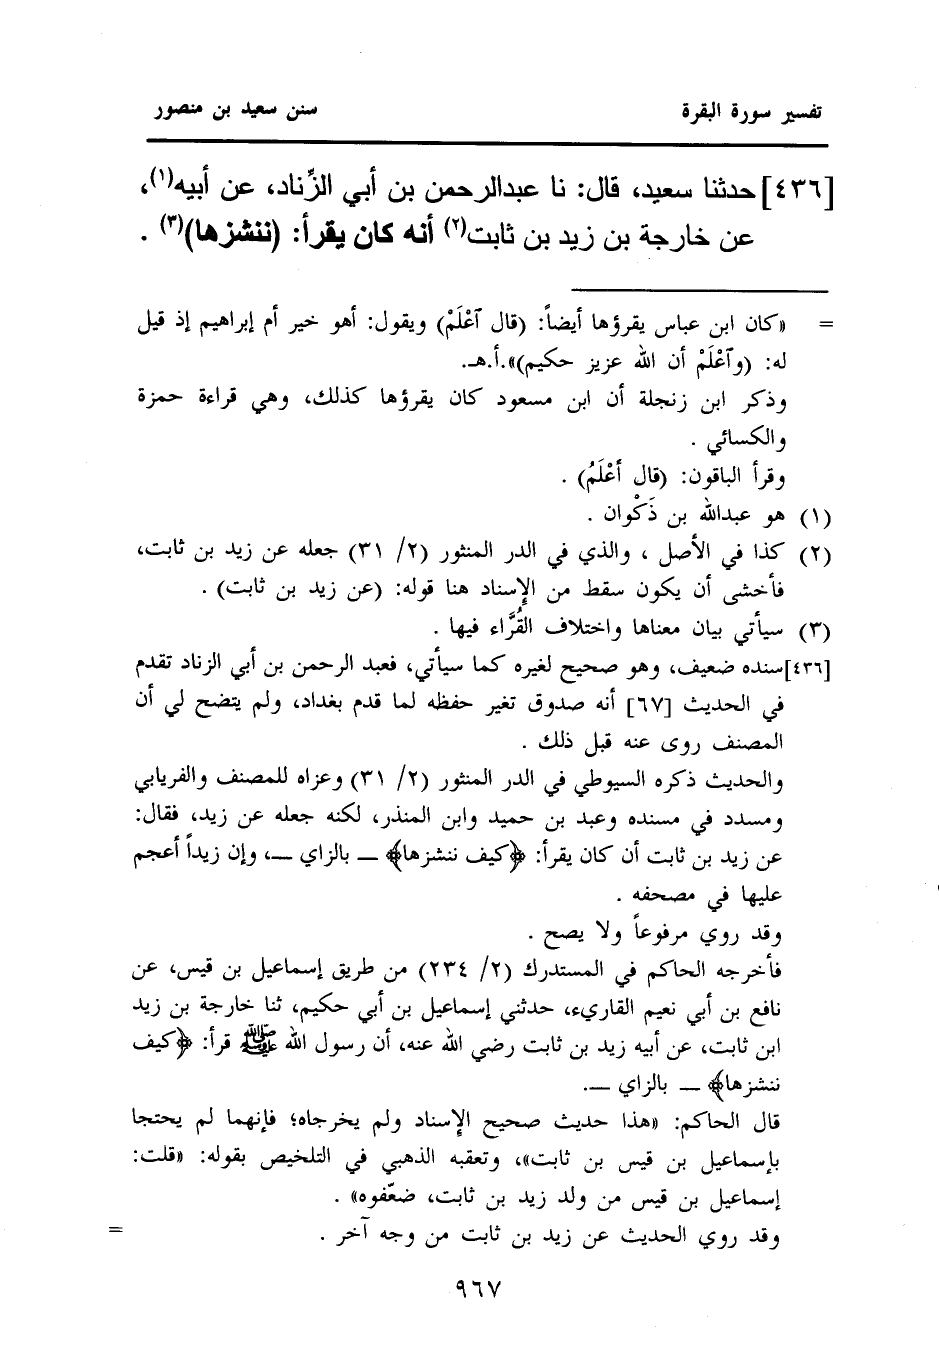 تفسير سورة البقرة سنن سعيد بن منصور
[٤٣٦] حدثنا سعيد، قال: نا عبدالرحمن بن أبي الزِّناد، عن أبيه(١)،
عن خارجة بن زيد بن ثابت(٢) أنه كان يقرأ: (ننشزها)(٣) .
= «كان ابن عباس يقرؤها أيضاً: (قال ٱعْلَمْ) ويقول: أهو خير أم إبراهيم إذ قيل
له: (وٱعْلَمْ أن الله عزيز حكيم)».أ.هـ.
وذكر ابن زنجلة أن ابن مسعود كان يقرؤها كذلك، وهي قراءة حمزة
والكسائي .
وقرأ الباقون: (قال أعْلَمُ) .
(١) هو عبدالله بن ذَكْوان .
(٢) كذا في الأصل ، والذي في الدر المنثور (٢/ ٣١) جعله عن زيد بن ثابت،
فأخشى أن يكون سقط من الإسناد هنا قوله: (عن زيد بن ثابت) .
(٣) سيأتي بيان معناها واختلاف القُرَّاء فيها .
[٤٣٦] سنده ضعيف، وهو صحيح لغيره كما سيأتي، فعبد الرحمن بن أبي الزناد تقدم
في الحديث [٦٧] أنه صدوق تغير حفظه لما قدم بغداد، ولم يتضح لي أن
المصنف روى عنه قبل ذلك .
والحديث ذكره السيوطي في الدر المنثور (٢/ ٣١) وعزاه للمصنف والفريابي
ومسدد في مسنده وعبد بن حميد وابن المنذر، لكنه جعله عن زيد، فقال:
عن زيد بن ثابت أن كان يقرأ: ﴿كيف ننشزها﴾ ــ بالزاي ــ، وإن زيداً أعجم
عليها في مصحفه .
وقد روي مرفوعاً ولا يصح .
فأخرجه الحاكم في المستدرك (٢/ ٢٣٤) من طريق إسماعيل بن قيس، عن
نافع بن أبي نعيم القاريء، حدثني إسماعيل بن أبي حكيم، ثنا خارجة بن زيد
ابن ثابت، عن أبيه زيد بن ثابت رضي الله عنه، أن رسول الله ﷺ قرأ: ﴿كيف
ننشزها﴾ ــ بالزاي ــ.
قال الحاكم: «هذا حديث صحيح الإسناد ولم يخرجاه؛ فإنهما لم يحتجا
بإسماعيل بن قيس بن ثابت»، وتعقبه الذهبي في التلخيص بقوله: «قلت:
إسماعيل بن قيس من ولد زيد بن ثابت، ضعّفوه» .
وقد روي الحديث عن زيد بن ثابت من وجه آخر . =
٩٦٧